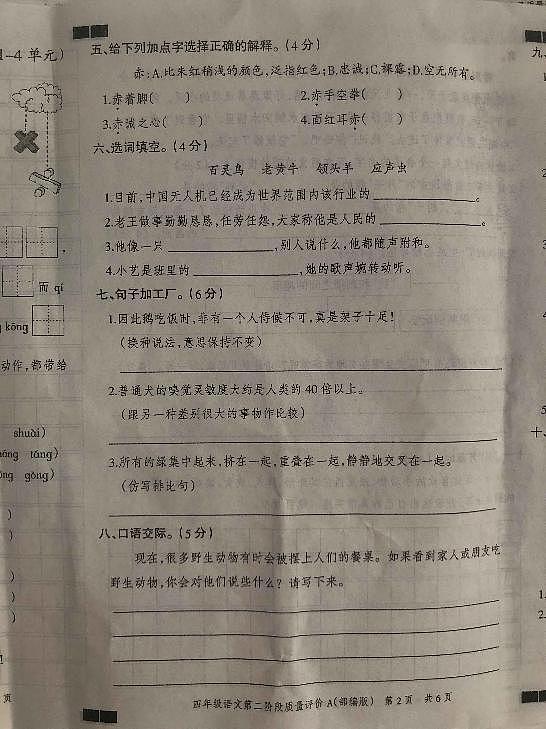 1-4 单元)
而 qí
kōng
动作,都带给
shuài)
táng)
gòng)
页
五、给下列加点字选择正确的解释。(4分)
赤:A.比朱红稍浅的颜色,泛指红色;B.忠诚;C.裸露;D.空无所有。
1.赤着脚( ) 2.赤手空拳( )
3.赤诚之心( ) 4.面红耳赤( )
六、选词填空。(4分)
百灵鸟 老黄牛 领头羊 应声虫
1.目前,中国无人机已经成为世界范围内该行业的 。
2.老王做事勤勤恳恳,任劳任怨,大家称他是人民的 。
3.他像一只 ,别人说什么,他都随声附和。
4.小艺是班里的 ,她的歌声婉转动听。
七、句子加工厂。(6分)
1.因此鹅吃饭时,非有一个人侍候不可,真是架子十足!
(换种说法,意思保持不变)
2.普通犬的嗅觉灵敏度大约是人类的40倍以上。
(跟另一种差别很大的事物作比较)
3.所有的绿集中起来,挤在一起,重叠在一起,静静地交叉在一起。
(仿写排比句)
八、口语交际。(5分)
现在,很多野生动物有时会被摆上人们的餐桌。如果看到家人或朋友吃
野生动物,你会对他们说些什么?请写下来。
四年级语文第二阶段质量评价A(部编版) 第2页 共6页
九、
十、
1.
2.